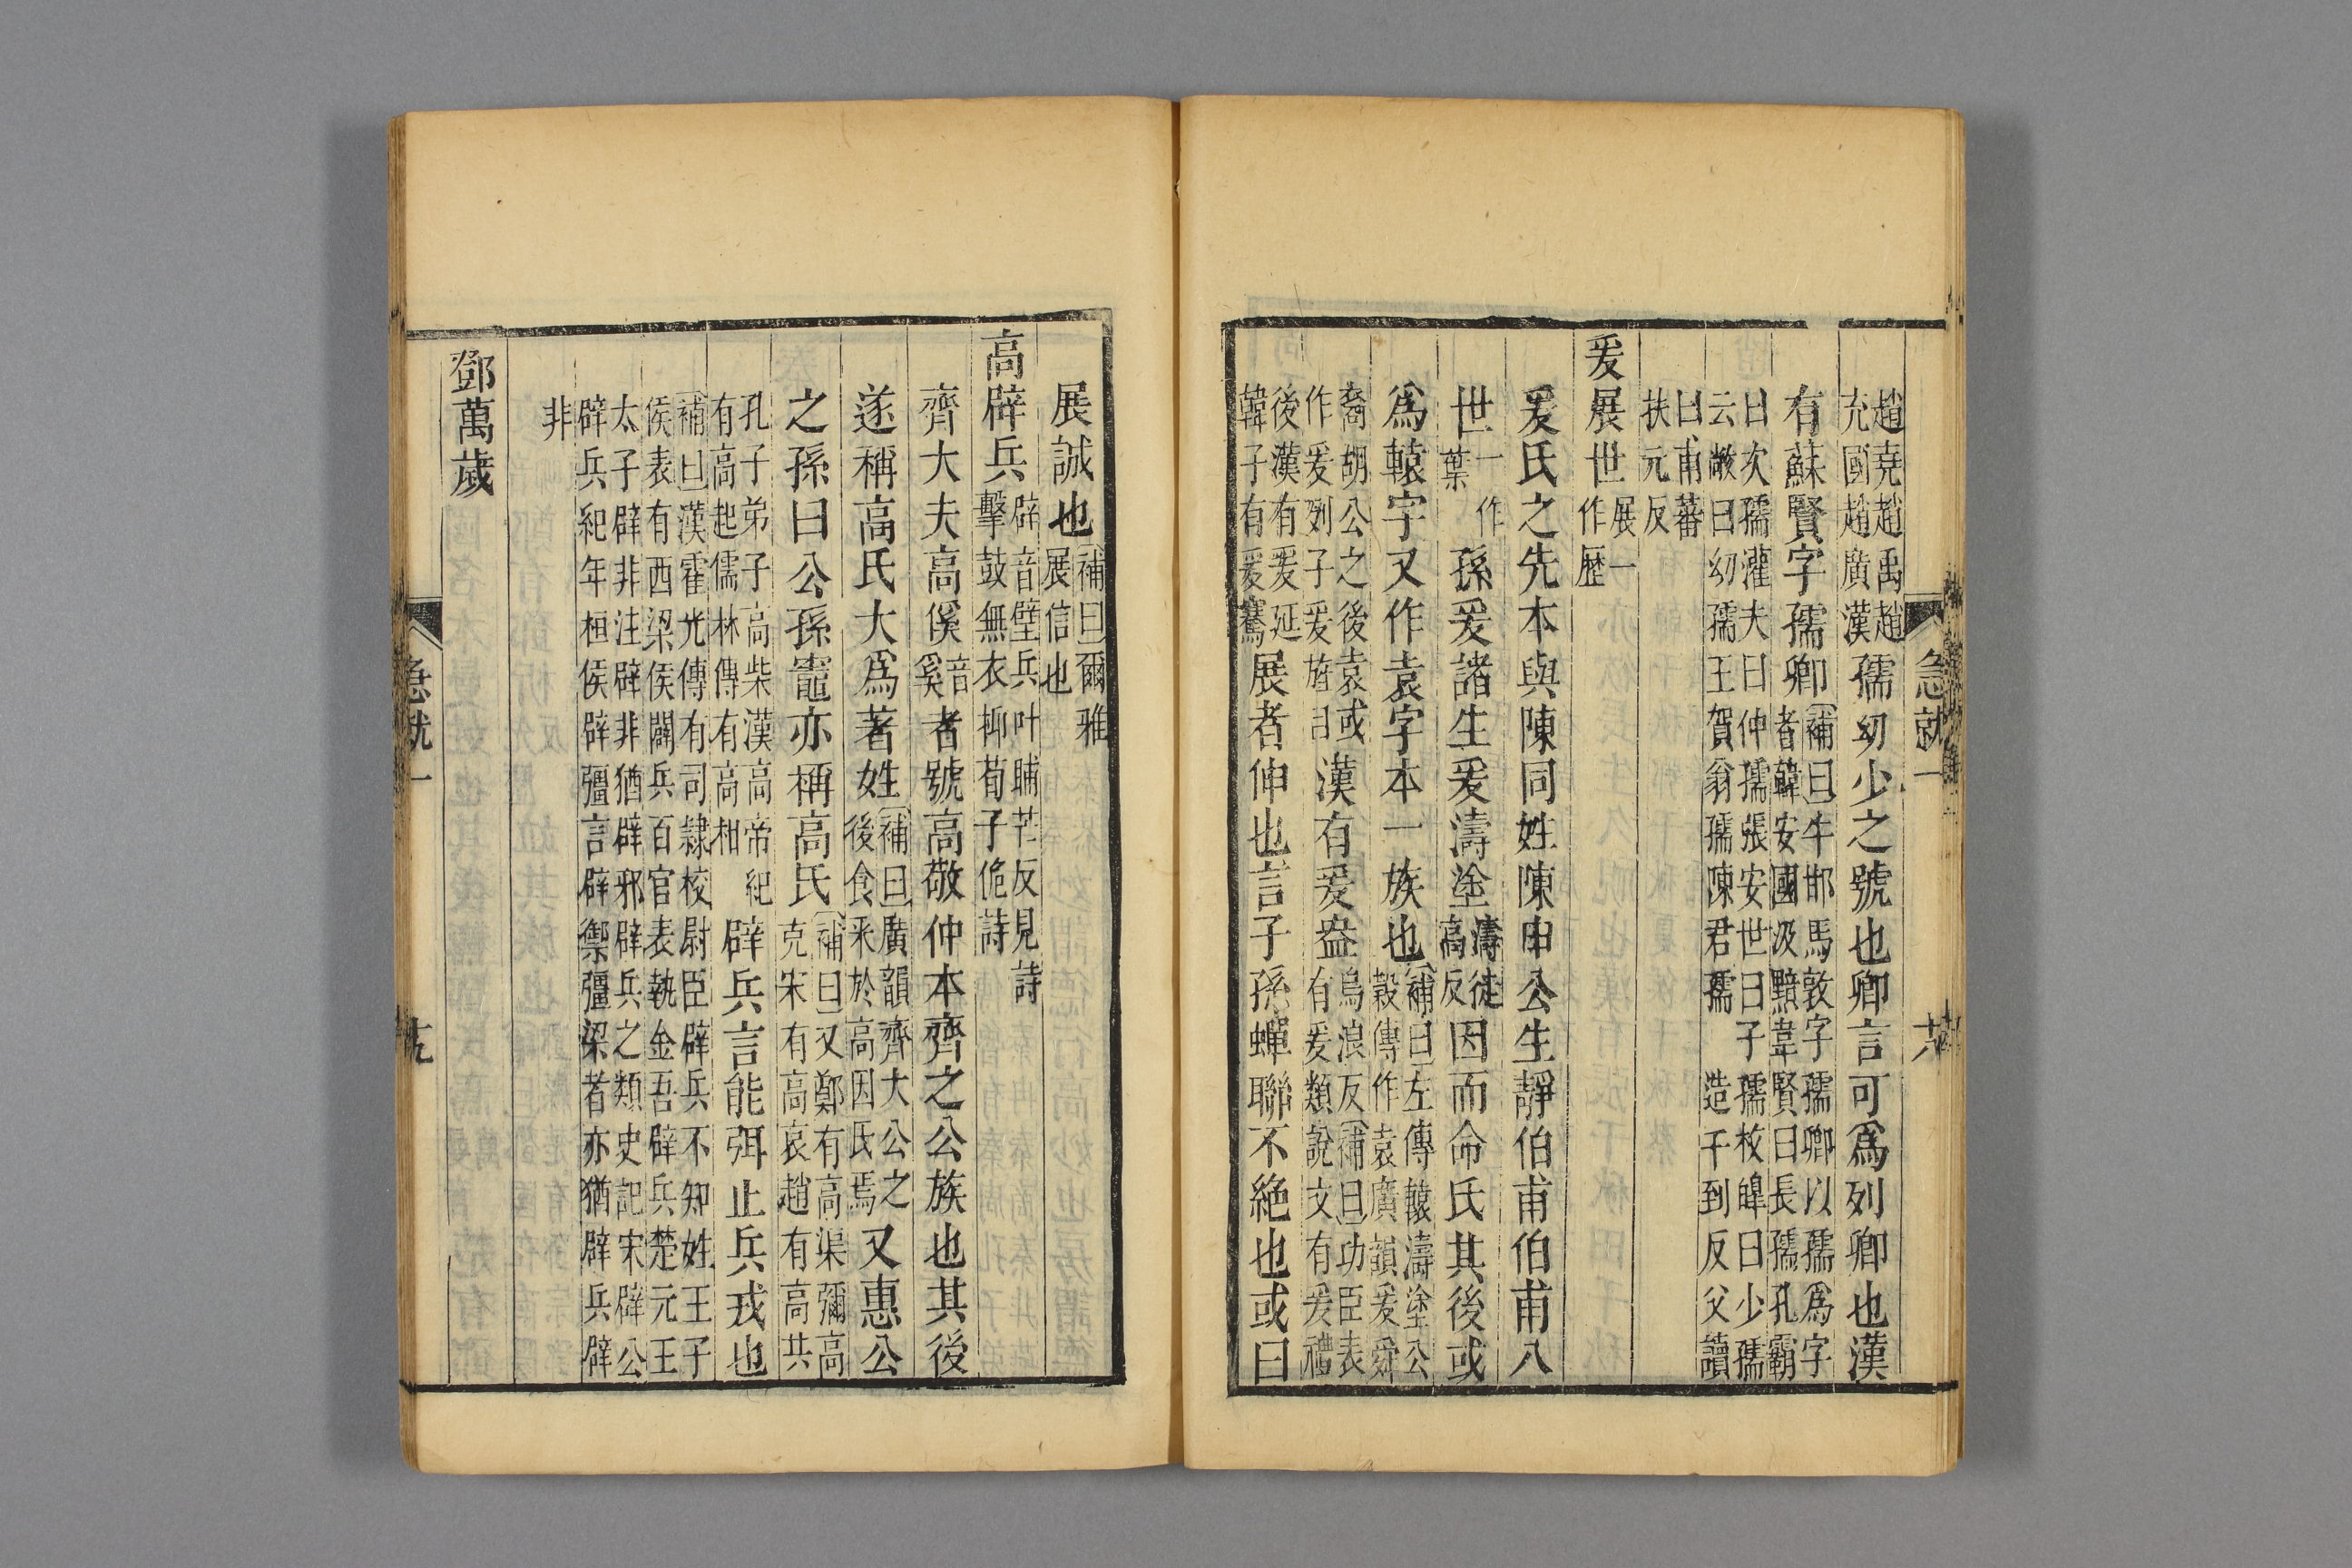 急就一
十六
趙堯趙禹趙
充國趙廣漢
孺幼少之號也卿言可爲列卿也漢
有蘇賢字孺卿
補曰牛邯馬敦字孺卿以孺爲字
者韓安國汲黯韋賢曰長孺孔霸
曰次孺灌夫曰仲孺張安世曰子孺枚皐曰少孺
云敞曰幼孺王賀翁孺陳君孺
造千到反父讀
曰甫蕃
扶元反
爰展世
展一
作歷
爰氏之先本與陳同姓陳申公生靜伯甫伯甫八
世
一作
葉
孫爰諸生爰濤塗
濤徒
高反
因而命氏其後或
爲轅字又作袁字本一族也
補曰左傳轅濤塗公
穀傳作袁廣韻爰舜
裔胡公之後袁或
作爰列子爰旌目
漢有爰盎
烏浪反補曰功臣表
有爰類說文有爰禮
後漢有爰延
韓子有爰騫
展者伸也言子孫蟬聯不絶也或曰
展誠也
補曰爾雅
展信也
高辟兵
辟音壁兵叶晡芒反見詩
擊鼓無衣抑荀子佹詩
齊大夫高傒
音
奚
者號高敬仲本齊之公族也其後
遂稱高氏大爲著姓
補曰廣韻齊大公之
後食釆於高因氏焉
又惠公
之孫曰公孫竈亦稱高氏
補曰又鄭有高渠彌高
克宋有高哀趙有高共
孔子弟子高柴漢高帝紀
有高起儒林傳有高相
辟兵言能弭止兵戎也
補曰漢霍光傳有司隸校尉臣辟兵不知姓王子
侯表有西梁侯闢兵百官表執金吾辟兵楚元王
太子辟非注辟非猶辟邪辟兵之類史記宋辟公
辟兵紀年桓侯辟彊言辟禦彊梁者亦猶辟兵辟
非
鄧萬歲
急就一